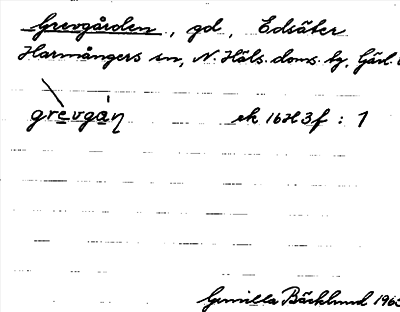 Grevgården, gd, Edsäter
Harmångers sn, N. Häls. doms. tg, Gävl.
grevgáṇ ek 16H3f : 1
Gunilla Bäcklund 196